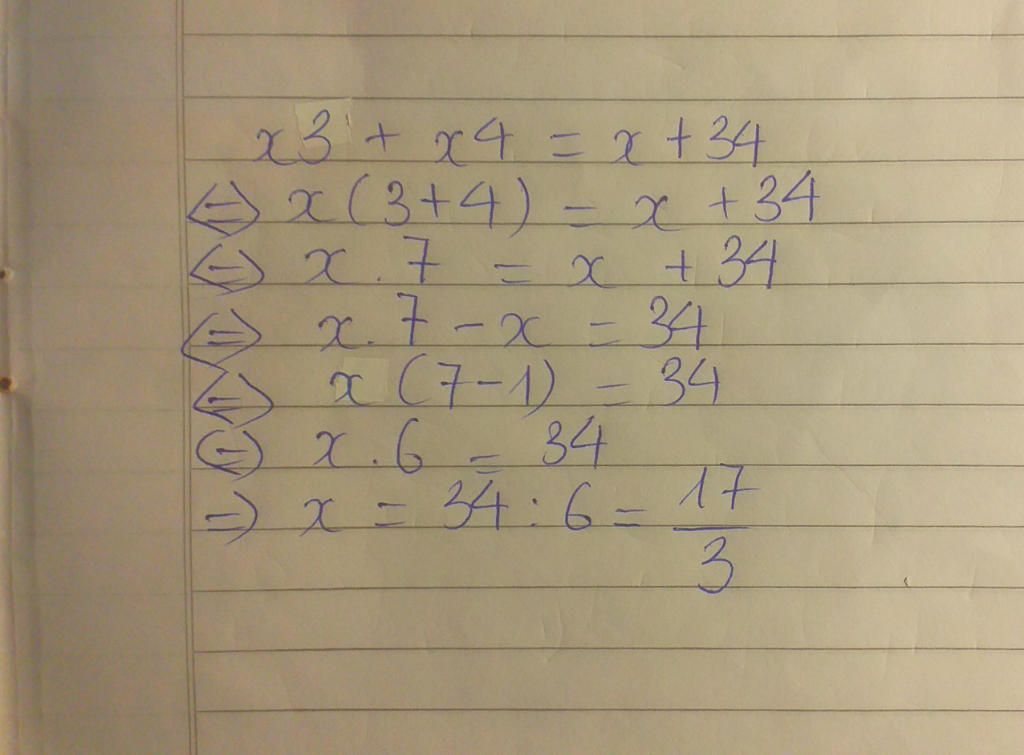 x3 + x4 = x + 34
⇔ x(3+4) = x + 34
⇔ x . 7 = x + 34
⇔ x . 7 - x = 34
⇔ x (7-1) = 34
⇔ x . 6 = 34
⇒ x = 34 : 6 = 17/3